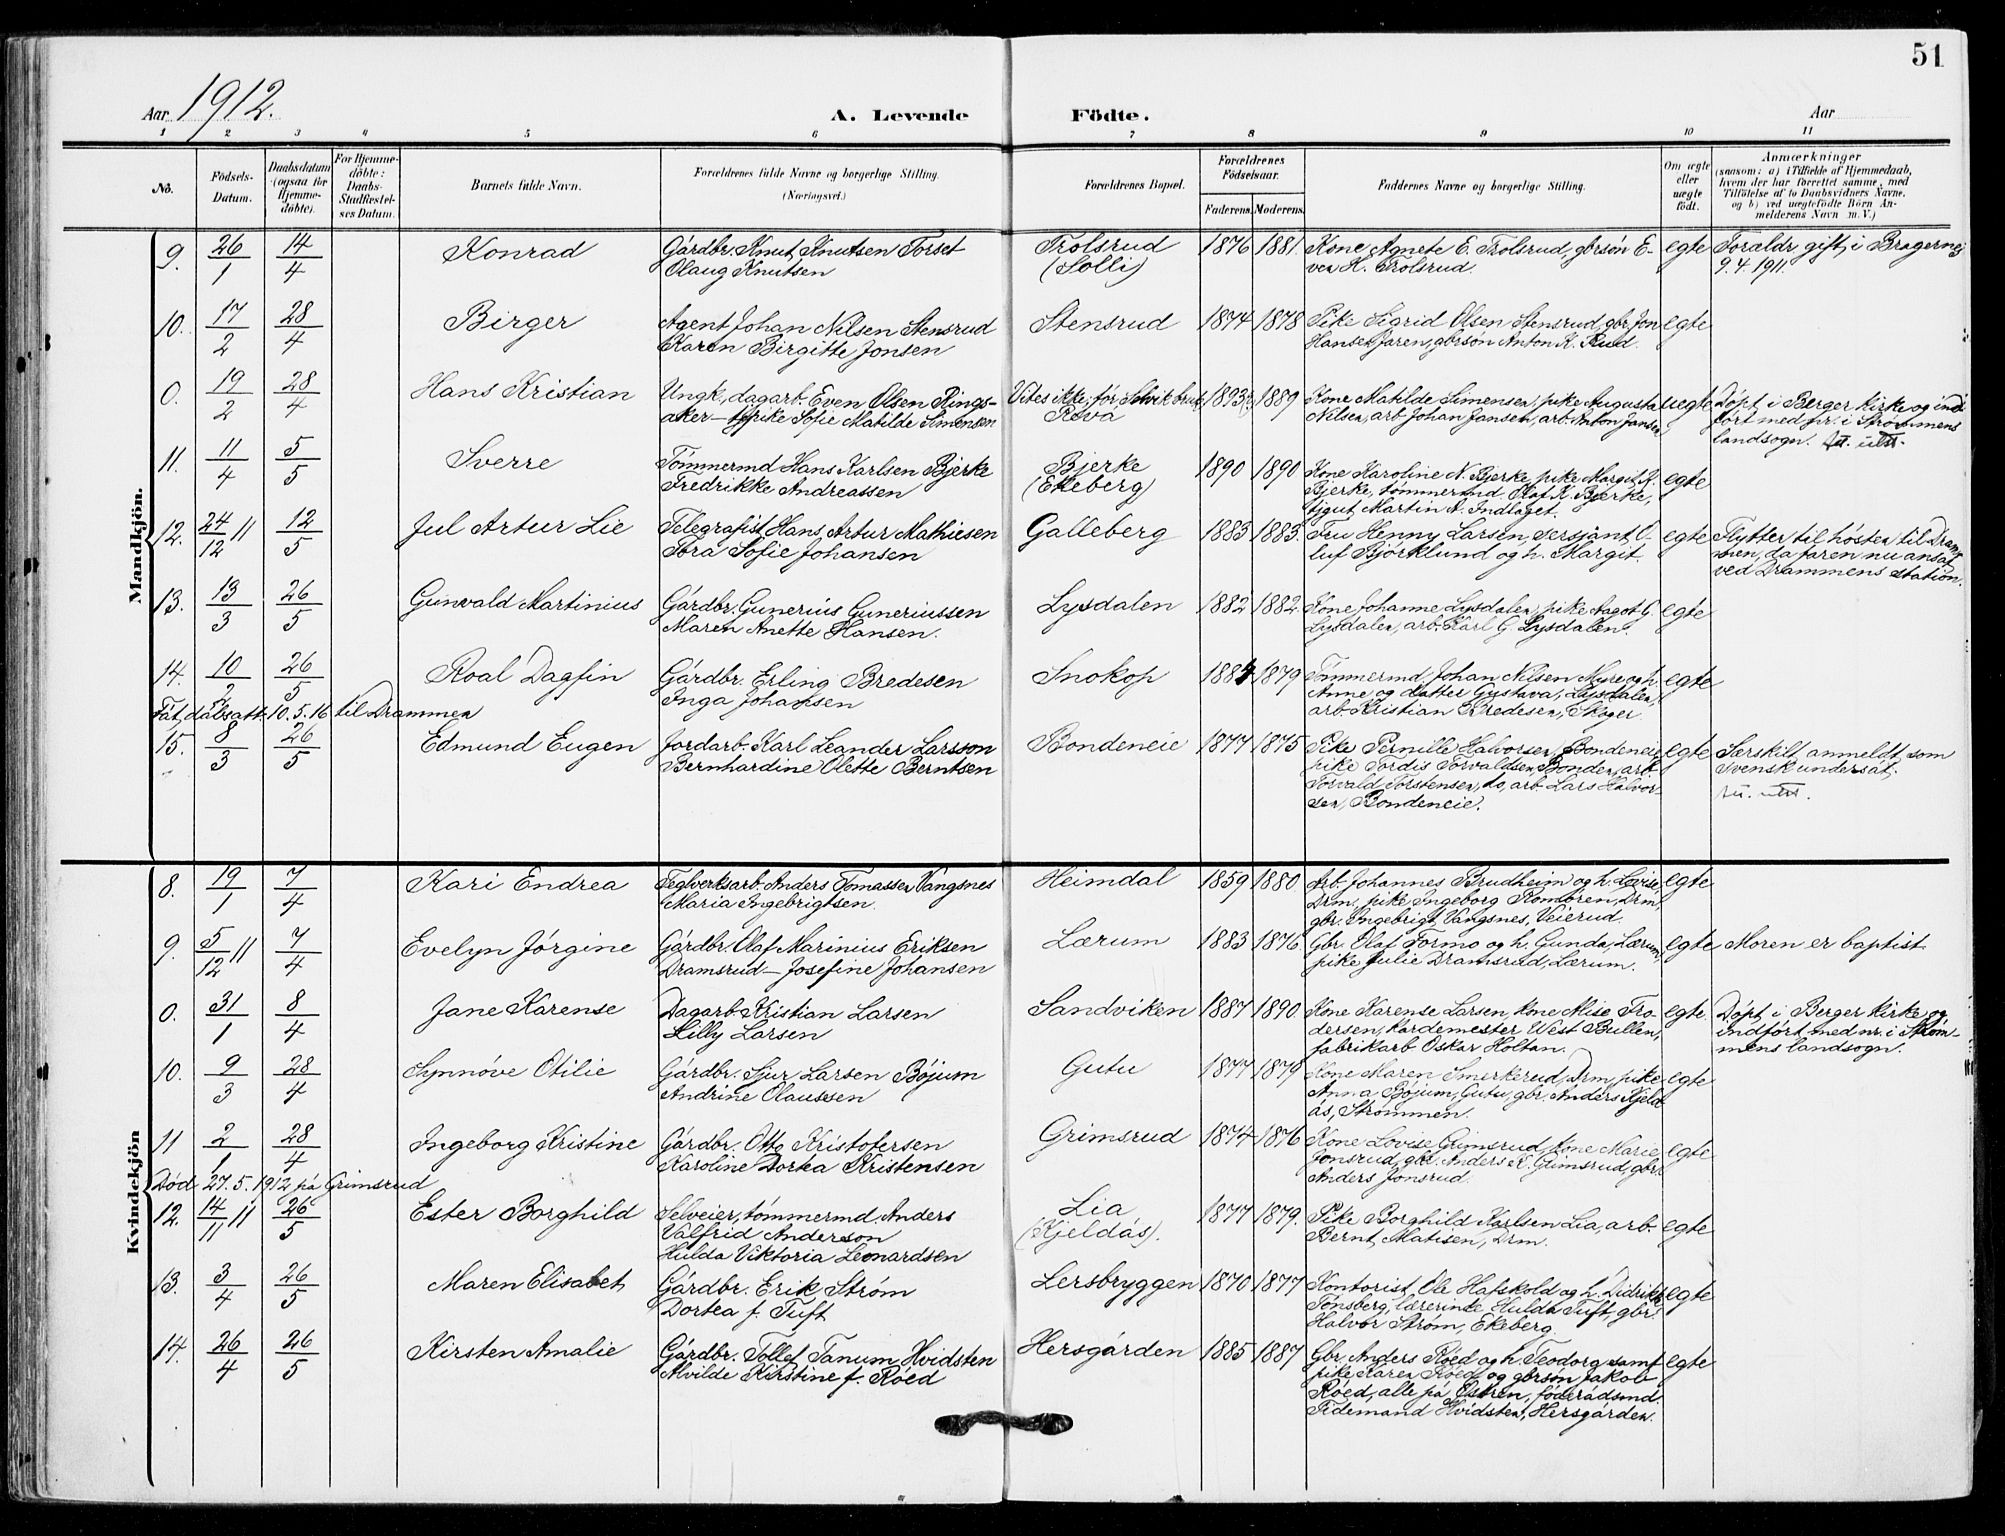 51
Aar 1912.
A. Levende Födte.
Aar
1 2 3 4 5 6 7 8 9 10 11
No.
Födsels-Datum.
Daabsdatum (ogsaa for Hjemme-døbte).
For Hjemme-døbte: Daabs-Stadfæstel-ses Datum.
Barnets fulde Navn.
Forældrenes fulde Navne og borgerlige Stilling. (Næringsvei.)
Forældrenes Bopæl.
Forældrenes Födselsaar.
Faderens. Moderens.
Faddernes Navne og borgerlige Stilling.
Om ægte eller uægte födt.
Anmærkninger
(saasom: a) i Tilfælde af Hjemmedaab,
hvem der har forrettet samme, med
Tilföielse af to Daabsvidners Navne,
og b) ved uægtefödte Börn An-
melderens Navn m. V.)
Mandkjön.
9. 26/1 14/4 Konrad Gårdbr. Knut Knutsen Torset Trolsrud 1876 1881. Kone Agnete E. Trolsrud, gbrsön E- egte Foraldr. gift i Bragernes
Olaug Knutsen (Solli) ven H. Trolsrud. 9.4.1911.
10. 17/2 28/4 Birger Agent Johan Nilsen Stensrud Stensrud 1874 1878 Pike Sigrid Olsen Stensrud, gbr. Jon egte
Karen Birgitte Jonsen Hansen Jaren, gbrsön Anton K. Rud.
0. 19/2 28/4 Hans Kristian Ungk., dagarb. Even Olsen Rings- Vites ikke, før Selvik bruk 1893 1889 Kone Matilde Simensen, pike Augusta uegte Døpt i Berger kirke og ind-
aker – pike Sofie Matilde Simensen Revå Nilsen, arb. Johan Jansen, arb. Anton Jansen ført med nr. i Strømmens
landsogn.
11. 11/4 5/5 Sverre Tømmermd Hans Karlsen Bjerke Bjerke 1890 1890 Kone Karoline N. Bjerke, pike Margit K. egte
Fredrikke Andreassen (Ekeberg) Bjerke, tømmermd. Olaf K. Bjerke,
tjgut Martin A. Indlaget.
12. 24/12 11 12/5 Jul Artur Lie Telegrafist Hans Artur Mathiesen Galleberg 1883 1883. Fru Henny Larsen, sersjant O- egte Flytter til høsten til Dram-
Tora Sofie Johansen luf Bjørklund og h. Margit. men, da faren nu ansat
ved Drammens station.
13. 13/3 26/5 Gunvald Martinius Gårdbr. Gunerius Guneriussen Lysdalen 1882 1882. Kone Johanne Lysdalen, pike Aagot G. egte
Maren Anette Hansen. Lysdalen, arb. Karl G. Lysdalen.
14. 10/2 26/5 Roal Dagfin Gårdbr. Erling Bredesen Snokop 1884 1879 Tømmermd Johan Nilsen Myre og h. egte
Inga Johansen Anne og datter Gustava, Lysdalen,
Fåt dåbsatt. 10.5.16 til Drammen arb. Kristian Bredesen, Skoger.
15. 8/3 26/5 Edmund Eugen Jordarb. Karl Leander Larsson Bondeneie 1877 1875 Pike Pernille Halvorsen, Bondeneie, egte Særskilt anmeldt som
Bernhardine Olette Berntsen pike Tordis Torvaldsen, Bonden, arb. svensk undersåt.
Torvald Torstensen, do, arb. Lars Halvor-
sen, Bondeneie.
Kvindekjön
8. 19/1 7/4 Kari Endrea Teglverksarb. Anders Tomassen Vangsnes Heimdal 1859 1880 Arb. Johannes Brudheim og h. Lovise, egte
Maria Ingebrigtsen. Drm, pike Ingeborg Romören, Drm,
gbr. Ingebrigt Vangsnes, Veierud.
9. 5/12 11 7/4 Evelyn Jørgine Gårdbr. Olaf Marinius Eriksen Lærum 1883 1876. Gbr. Olaf Formo og h. Gunda, Lærum, egte Moren er baptist
Dramsrud – Josefine Johansen pike Julie Dramsrud, Lærum.
0. 31/1 8/4 Jane Karense Dagarb. Kristian Larsen Sandviken 1887 1890. Kone Karense Larsen, kone Mise Tro- egte. Døpt i Berger kirke og
Lilly Larsen dersen, kardemester West Bullen, indført med nr. i Strøm-
fabrikarb Oskar Holtan. mens landsogn.
10. 9/3 28/4 Synnøve Otilie Gårdbr. Sjur Larsen Bøjum Gutu 1877 1879 Kone Maren Smerkerud, Drm, pike egte
Andrine Olaussen Anna Bøjum, Gutu, gbr. Anders Kjeld-
ås, Strømmen.
11 2/1 28/4 Ingeborg Kristine Gårdbr. Otto Kristofersen Grimsrud 1874 1876 Kone Lovise Grimsrud, kone Marie egte
Karoline Dortea Kristensen Jonsrud, gbr. Anders K. Grimsrud, gbr.
Død 27.5.1912 på Grimsrud Anders Jonsrud.
12. 14/11 11 26/5 Ester Borghild Selveier, tømmermd. Anders Lia 1877 1879. Pike Borghild Karlsen Lia, arb. egte
Valfrid Anderson (Kjeldås). Bernt Matisen, Drm.
Hulda Viktoria Leonardsen
13. 3/4 26/5 Maren Elisabet Gårdbr. Erik Strøm Lersbryggen 1870 1877 Kontorist Ole Hafskold og h. Didrikke egte
Dortea f. Tuft Tønsberg, lærerinde Hulda Tuft, gbr.
Halvor Strøm, Ekeberg.
14. 26/4 26/5 Kirsten Amalie Gårdbr. Tollef Tanum Hvidsten Hersgården 1885 1887 Gbr. Anders Røed og h. Teodora samt egte
Alvilde Kirstine f. Røed pike Karen Røed og gbrsøn Jakob
Røed, alle på Østren, føderådsmd.
Tidemand Hvidsten, Hersgården.